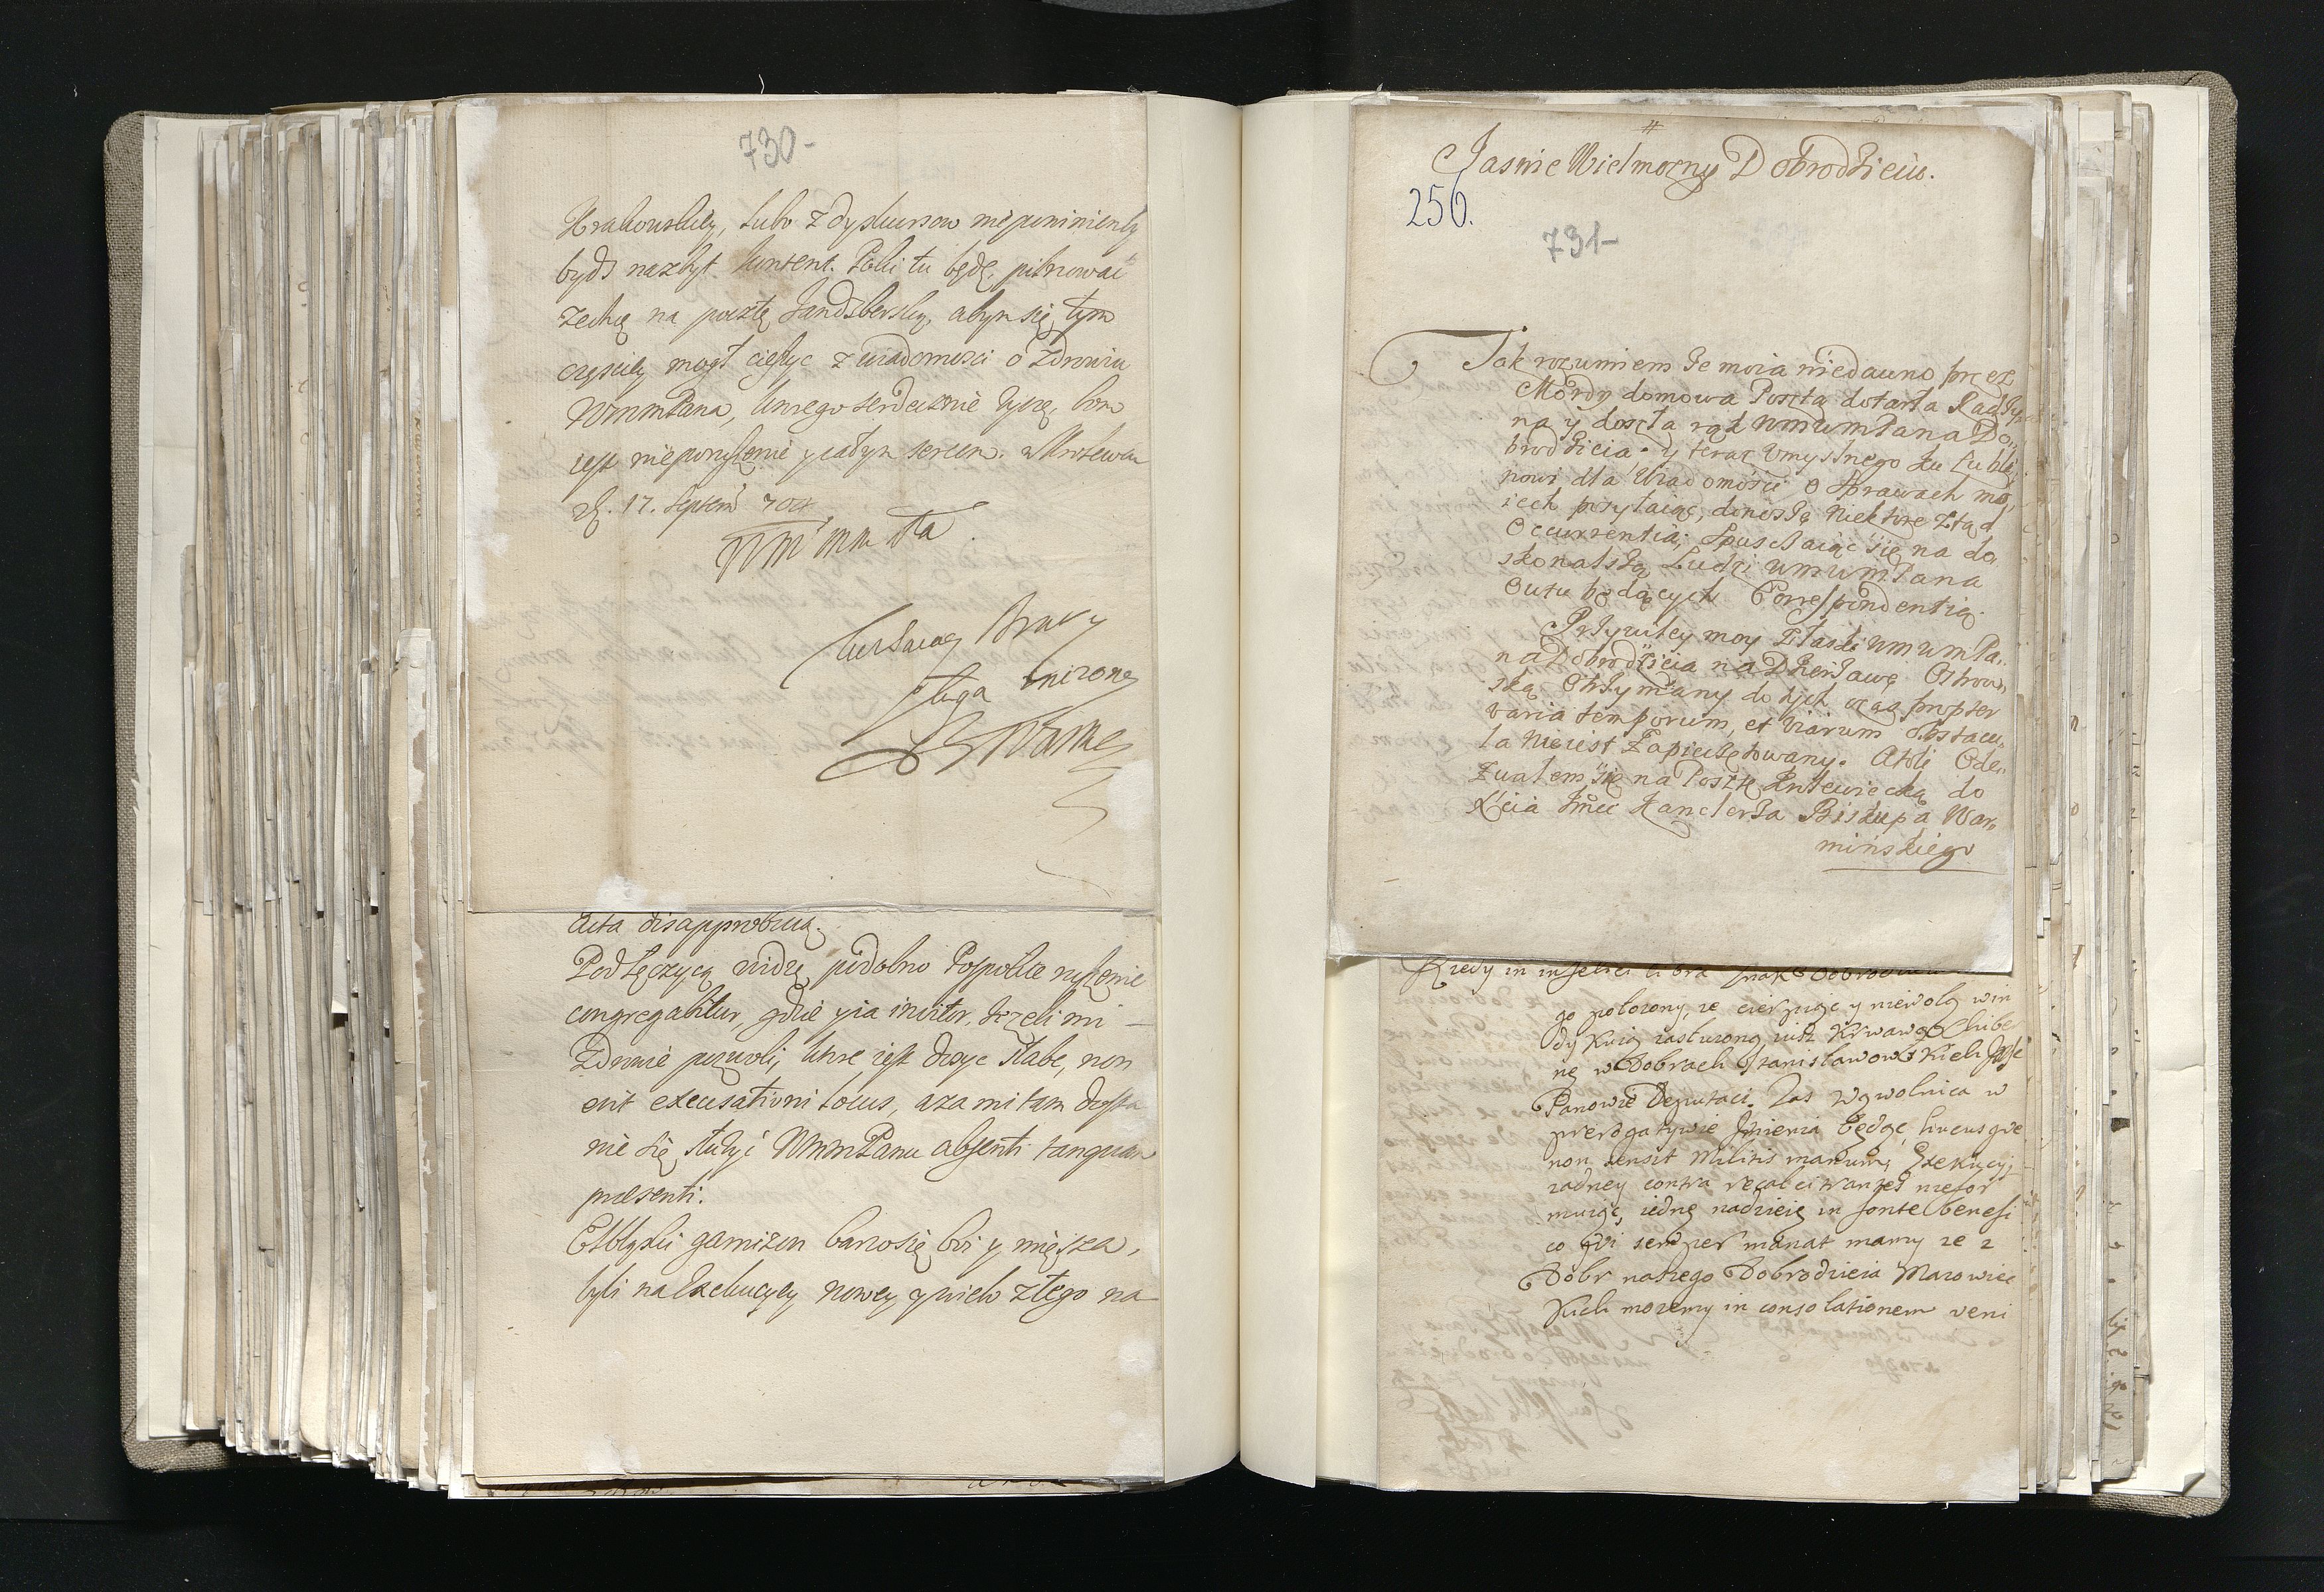 730-
Krakowskiey, lubo z dyskursow nie powinienby
bydź nazbyt kontent. Poki tu będę, pilnować
zechcę na pocztę Landsberską, abym się tym
częsciey mogł cieszyc z wiadomosci o zdrowiu
WMMPana, ktorego serdecznie życzę, bom
iest nieporuszenie y całym sercem. w Krolewcu
d. 17. Septem 704
WM mm Pa
Brat y
sługa unizony
Acta disapprobuią.
Pod Łęczycą widzę podobno Pospolite ruszenie
congregabitur, gdzie y ia invitor. Jezeli mi
zdrowie pozwoli, ktore iest dosyc słabe, non
erit excusationi locus, aza mi tam dosta
nie się służyć WMMPanu absenti tanquam
praesenti.
Elbląski garnizon barzo się boi y mięsza,
byli na Exekucyey nowey, y wiele złego na
Jasnie Wielmozny Dobrodzieiu.
250.
731-
Tak rozumiem że moia niedawno przez
Mordy domowa Poszta dotarła Radzy
na y doszła rąk WMWMPana Do
brodzieia. y teraz Umyslnego ku Lubli
nowi dla Wiadomości o Sprawach mo
ich przysłaiąc, donoszę Niektore ztąd
Occurrentia; spuszczaiąc się na do
skonalszą Ludzi WMWMPana
tutu będących Correspondentią.
Przywiley moy z łaski WMWMPa
na Dobrodzieia na Dzierżawę Ostrow
ską Otrzymany do tych czas propter
varia temporum, et viarum Obstacu
la nie iest Zapieczętowany. Atoli Ode
zwałem się na Posztę Krolewiecką do
Xcia Jmci Kanclerza Biskupa War
mińskiego
Kiedy in infelici libra znak Dobrodzieia
go położony, ze cierpiąc y niewolą win
dykuią zasłuzoną iusz krwawo Chibe
nę w Dobrach Stanisławowskich Jchm
Panowie Deputaci. Zas Wgwolnica w
prerogatywie Imienia będąc, hucusque
non sensit Militis manum, Exekucyi
zadney contra recalcitrantes niefor
muiąc, iednę nadzieię in fonte benefi
co qui semper manat mamy ze z
Dobr naszego Dobrodzieia Mazowiec
kich mozemy in consolationem veni